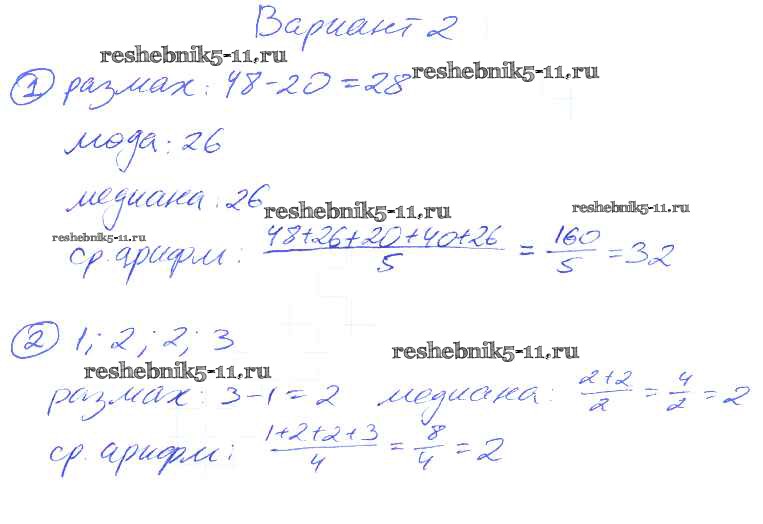 Вариант 2
reshebnik5-11.ru
reshebnik5-11.ru
① размах: 48-20=28
мода: 26
медиана: 26
reshebnik5-11.ru
reshebnik5-11.ru
reshebnik5-11.ru
ср. арифм: (48+26+20+40+26)/5 = 160/5 = 32
② 1; 2; 2; 3
reshebnik5-11.ru
reshebnik5-11.ru
размах: 3-1=2 медиана: (2+2)/2 = 4/2 = 2
ср. арифм: (1+2+2+3)/4 = 8/4 = 2